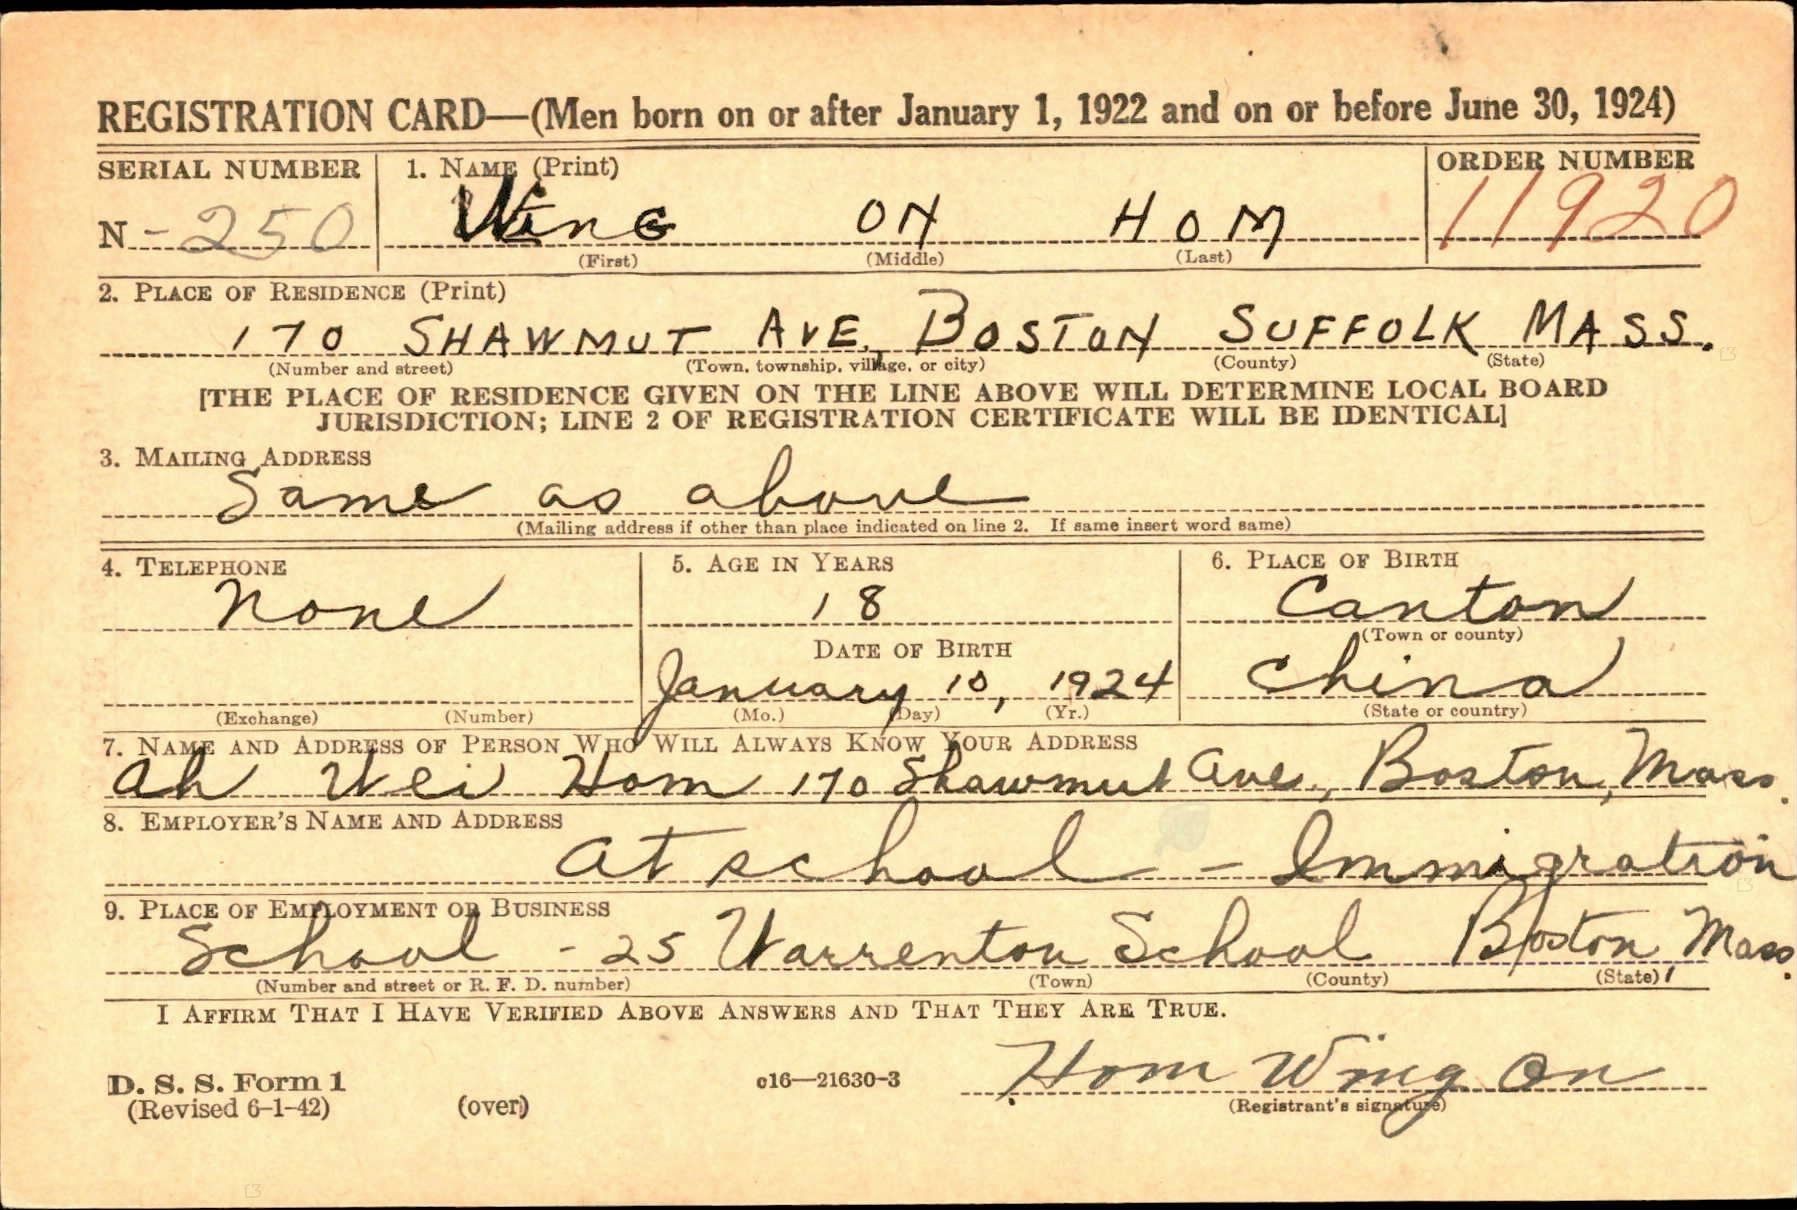 REGISTRATION CARD—(Men born on or after January 1, 1922 and on or before June 30, 1924)
SERIAL NUMBER 1. NAME (Print) ORDER NUMBER
N-250 Wing ON HOM 11920
(First) (Middle) (Last)
2. PLACE OF RESIDENCE (Print)
170 SHAWMUT AVE, BOSTON SUFFOLK MASS.
(Number and street) (Town, township, village, or city) (County) (State)
[THE PLACE OF RESIDENCE GIVEN ON THE LINE ABOVE WILL DETERMINE LOCAL BOARD
JURISDICTION; LINE 2 OF REGISTRATION CERTIFICATE WILL BE IDENTICAL]
3. MAILING ADDRESS
Same as above
(Mailing address if other than place indicated on line 2. If same insert word same)
4. TELEPHONE 5. AGE IN YEARS 6. PLACE OF BIRTH
None 18 Canton
(Town or county)
DATE OF BIRTH
January 10, 1924 China
(Exchange) (Number) (Mo.) (Day) (Yr.) (State or country)
7. NAME AND ADDRESS OF PERSON WHO WILL ALWAYS KNOW YOUR ADDRESS
Ah Wei Hom 170 Shawmut Ave., Boston, Mass.
8. EMPLOYER'S NAME AND ADDRESS
At school - Immigration
9. PLACE OF EMPLOYMENT OR BUSINESS
School - 25 Warrenton School Boston, Mass.
(Number and street or R. F. D. number) (Town) (County) (State)
I AFFIRM THAT I HAVE VERIFIED ABOVE ANSWERS AND THAT THEY ARE TRUE.
D. S. S. Form 1 c16—21630-3 Hom Wing On
(Revised 6-1-42) (over) (Registrant's signature)